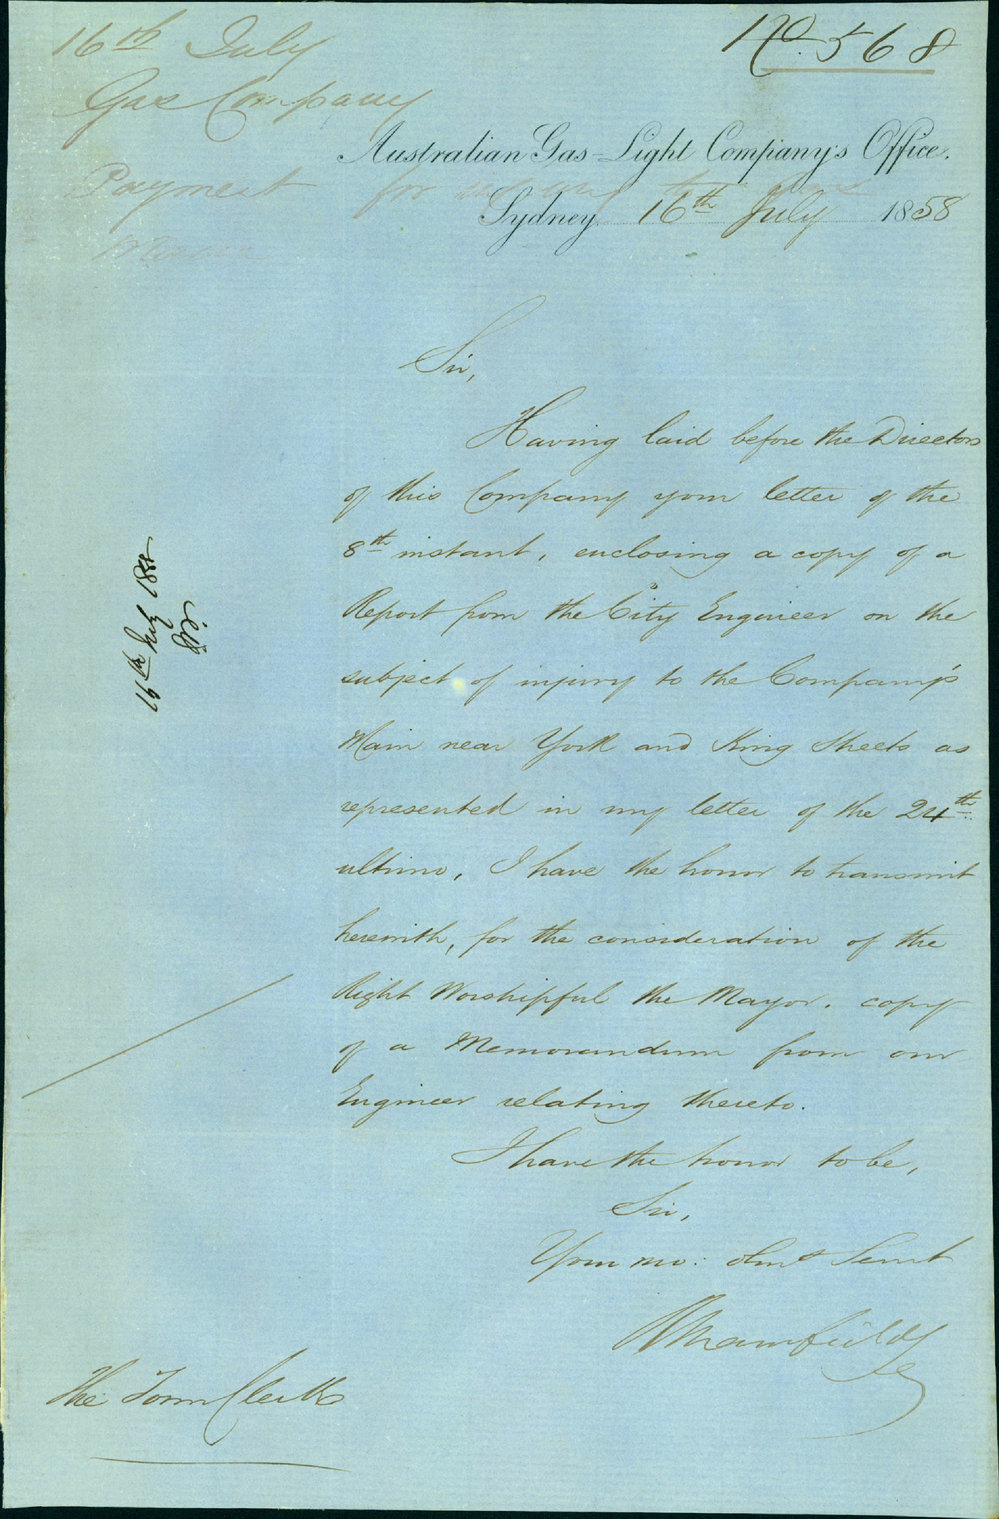 No. 568
16th July
Gas Company
Payment for
Australian Gas-Light Company's Office,
Sydney 16th July 1858
Sir,
Having laid before the Directors
of this Company your letter of the
8th instant, enclosing a copy of a
Report from the City Engineer on the
subject of injury to the Company's
Main near York and King Streets as
represented in my letter of the 24th
ultimo, I have the honor to transmit
herewith, for the consideration of the
Right Worshipful the Mayor, copy
of a Memorandum from our
Engineer relating thereto.
I have the honor to be,
Sir,
Your mo: obnt Servt
RMansfield
The Town Clerk
July 1858